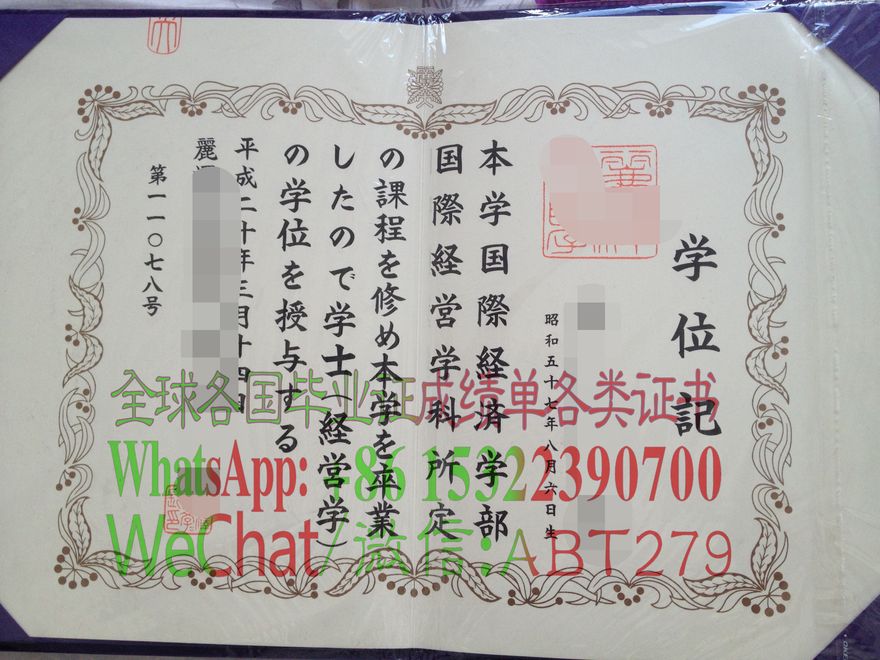 学位記
昭和五十七年八月六日生
本学国際経済学部
国際経営学科所定
の課程を修め本学を卒業
したので学士(経営学)
の学位を授与する
平成二十年三月十四日
麗
第一一〇七八号
全球各国毕业证成绩单各类证书
WhatsApp: +86 15922390700
WeChat/微信:ABT279